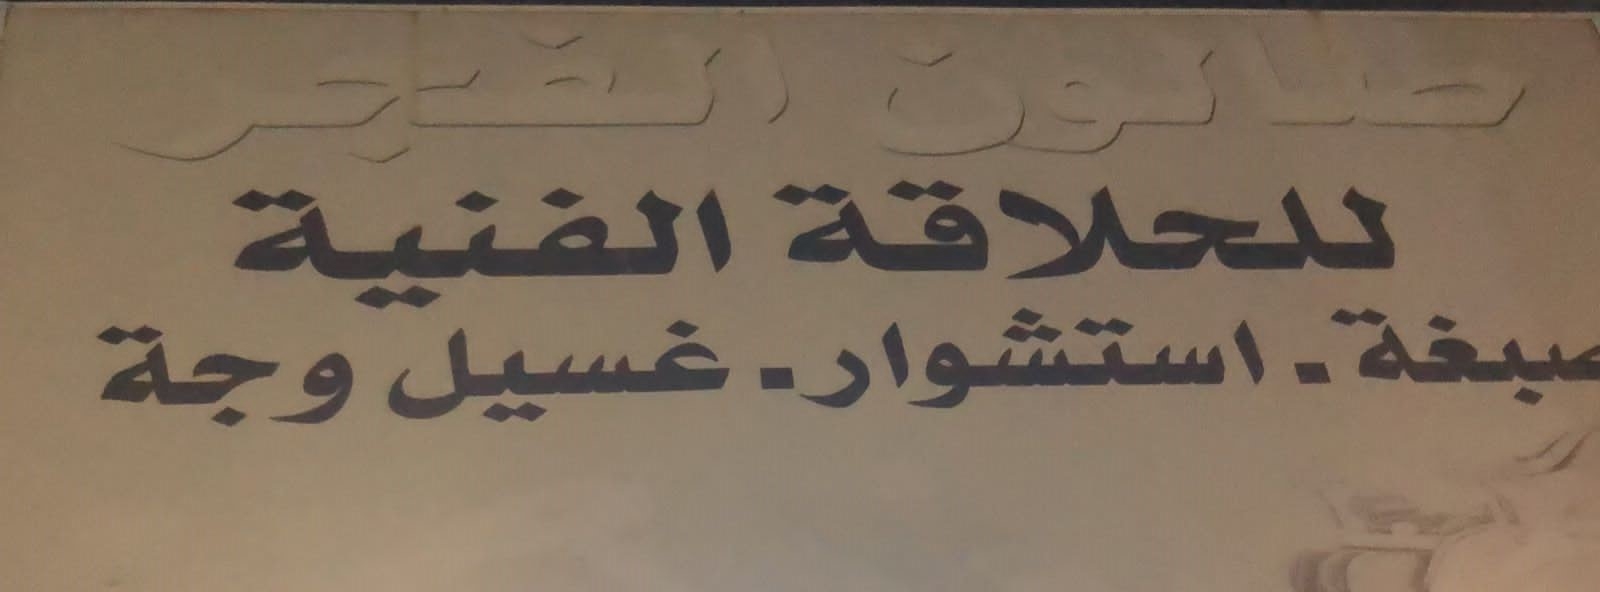 صالون الفجر
للحلاقة الفنية
صبغة - استشوار - غسيل وجة